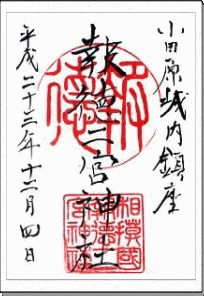 小田原城内鎮座
報徳二宮神社
平成二十三年十二月四日
報徳
相模國